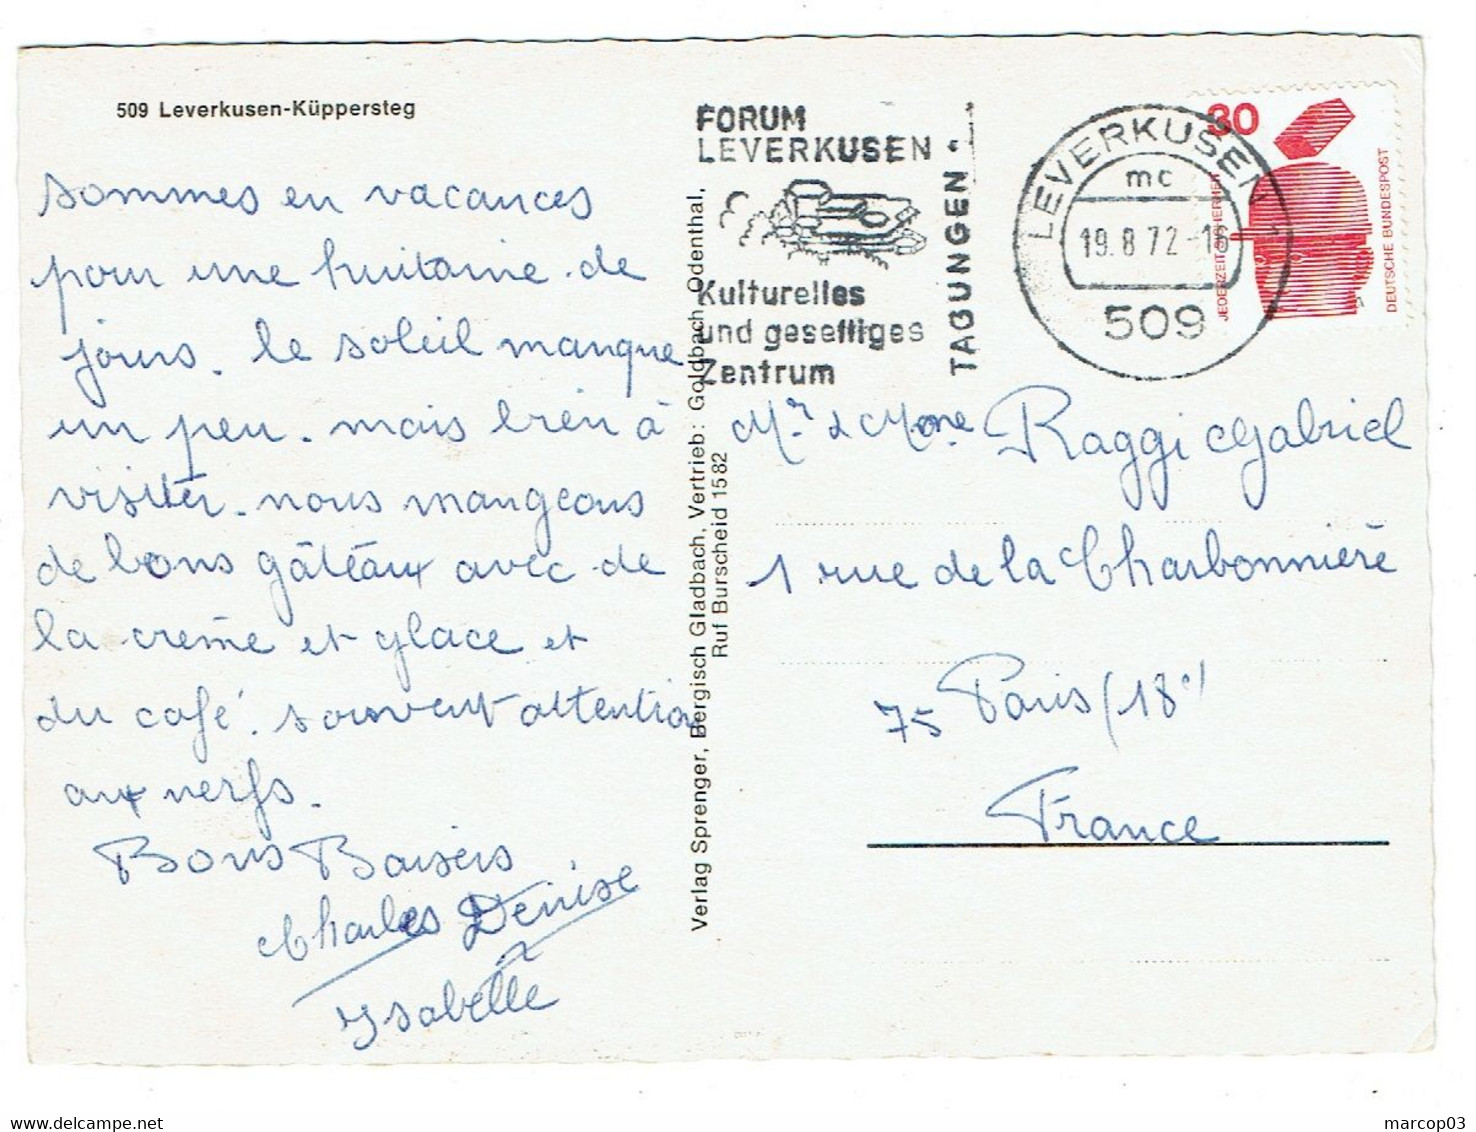 509 Leverkusen-Küppersteg
sommes en vacances
pour une huitaine de
jours. le soleil manque
un peu. mais bien à
visiter. nous mangeons
de bons gâtéaux avec de
la creme et glace et
du café. souvent attention
aux nerfs.
Bons Baisers
Charles Denise
Ysabelle
Verlag Sprenger, Bergisch Gladbach, Vertrieb: Goldbach, Odenthal,
Ruf Burscheid 1582
FORUM
LEVERKUSEN
Kulturelles
und geselliges
Zentrum
TAGUNGEN
LEVERKUSEN 1
mc
19.8.72-16
509
30
JEDERZEIT SICHERHEIT
DEUTSCHE BUNDESPOST
Mr & Mme Raggi Gabriel
1 rue de la Charbonnière
75 Paris (18e)
France
marcop03